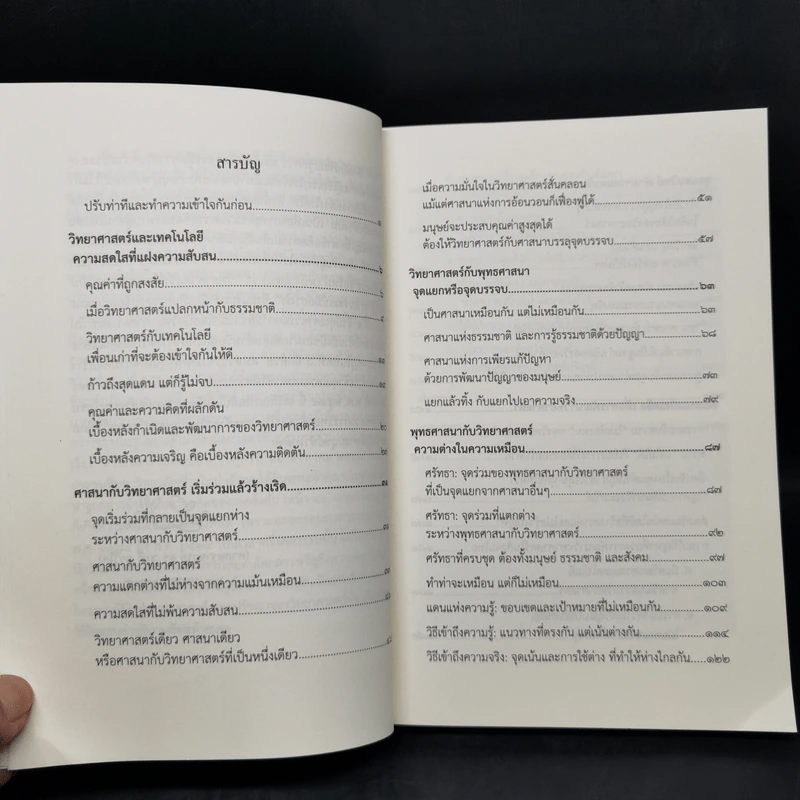 สารบัญ
ปรับท่าทีและทำความเข้าใจกันก่อน..........๑
วิทยาศาสตร์และเทคโนโลยี
ความสดใสที่แฝงความสับสน..........๖
คุณค่าที่ถูกสงสัย..........๖
เมื่อวิทยาศาสตร์แปลกหน้ากับธรรมชาติ..........๙
วิทยาศาสตร์กับเทคโนโลยี
เพื่อนเก่าที่จะต้องเข้าใจกันให้ดี..........
ก้าวถึงสุดแดน แต่ก็รู้ไม่จบ..........
คุณค่าและความคิดที่ผลักดัน
เบื้องหลังกำเนิดและพัฒนาการของวิทยาศาสตร์..........
เบื้องหลังความเจริญ คือเบื้องหลังความติดตัน..........
ศาสนากับวิทยาศาสตร์ เริ่มร่วมแล้วร้างเริด..........
จุดเริ่มร่วมที่กลายเป็นจุดแยกห่าง
ระหว่างศาสนากับวิทยาศาสตร์..........
ศาสนากับวิทยาศาสตร์
ความแตกต่างที่ไม่ห่างจากความแม้นเหมือน..........
ความสดใสที่ไม่พ้นความสับสน..........
วิทยาศาสตร์เดียว ศาสนาเดียว
หรือศาสนากับวิทยาศาสตร์ที่เป็นหนึ่งเดียว..........
เมื่อความมั่นใจในวิทยาศาสตร์สั่นคลอน
แม้แต่ศาสนาแห่งการอ้อนวอนก็เฟื่องฟูได้..........๕๑
มนุษย์จะประสบคุณค่าสูงสุดได้
ต้องให้วิทยาศาสตร์กับศาสนาบรรลุจุดบรรจบ..........๕๗
วิทยาศาสตร์กับพุทธศาสนา
จุดแยกหรือจุดบรรจบ..........๖๓
เป็นศาสนาเหมือนกัน แต่ไม่เหมือนกัน..........๖๓
ศาสนาแห่งธรรมชาติ และการรู้ธรรมชาติด้วยปัญญา..........๖๘
ศาสนาแห่งการเพียรแก้ปัญหา
ด้วยการพัฒนาปัญญาของมนุษย์..........๗๓
แยกแล้วทิ้ง กับแยกไปเอาความจริง..........๗๙
พุทธศาสนากับวิทยาศาสตร์
ความต่างในความเหมือน..........๘๗
ศรัทธา: จุดร่วมของพุทธศาสนากับวิทยาศาสตร์
ที่เป็นจุดแยกจากศาสนาอื่นๆ..........๘๗
ศรัทธา: จุดร่วมที่แตกต่าง
ระหว่างพุทธศาสนากับวิทยาศาสตร์..........๙๒
ศรัทธาที่ครบชุด ต้องทั้งมนุษย์ ธรรมชาติ และสังคม..........๙๗
ทำท่าจะเหมือน แต่ก็ไม่เหมือน..........๑๐๓
แดนแห่งความรู้: ขอบเขตและเป้าหมายที่ไม่เหมือนกัน..........๑๐๙
วิธีเข้าถึงความรู้: แนวทางที่ตรงกัน แต่เน้นต่างกัน..........๑๑๔
วิธีเข้าถึงความจริง: จุดเน้นและการใช้ต่าง ที่ทำให้ห่างไกลกัน.....๑๒๒